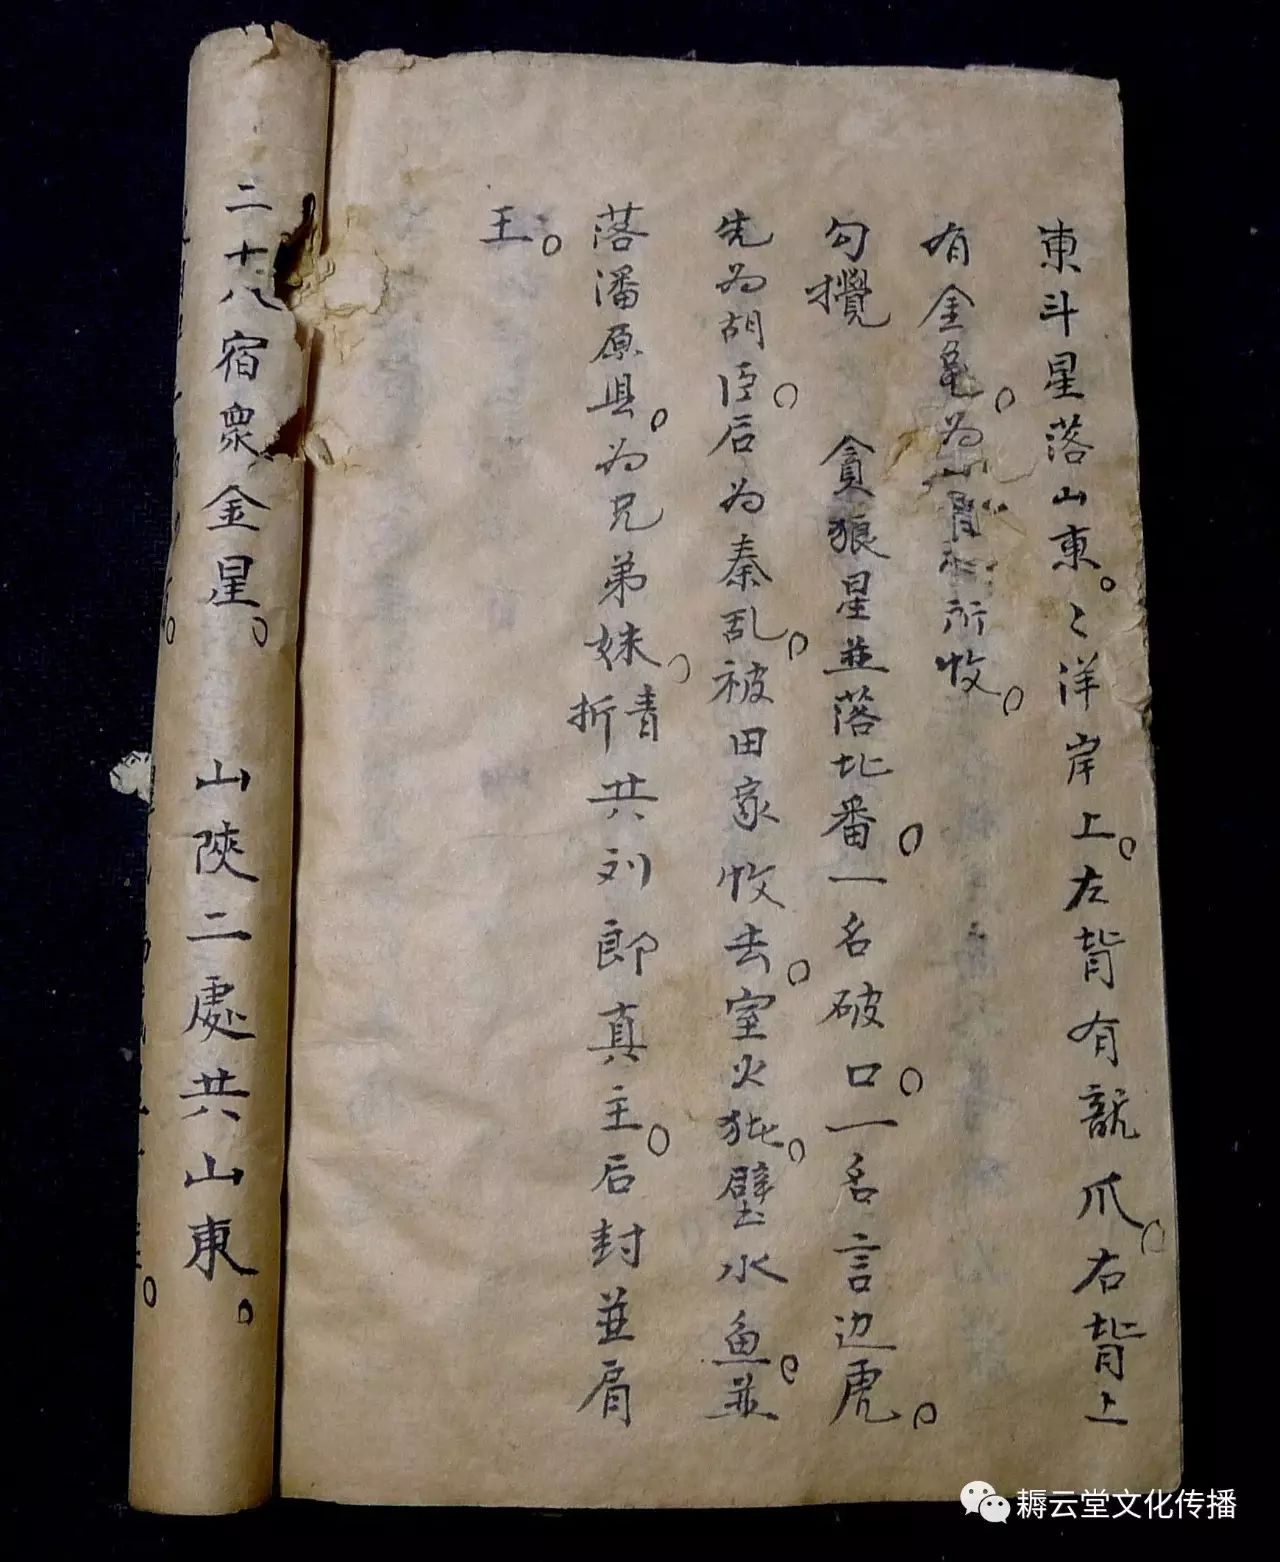 東斗星落山東。〻洋岸上。左背有龍爪。右背上
有金龟。为所收。
勾攪 貪狼星並落北番。一名破口。一名言边虎。
先为胡臣。后为秦乱。被田家收去。室火猪。壁水鱼。並
落潘原县。为兄弟妹。折青共刘郎真主。后封並肩
王。
二十八宿衆金星。 山陝二處共山東。
耨云堂文化传播